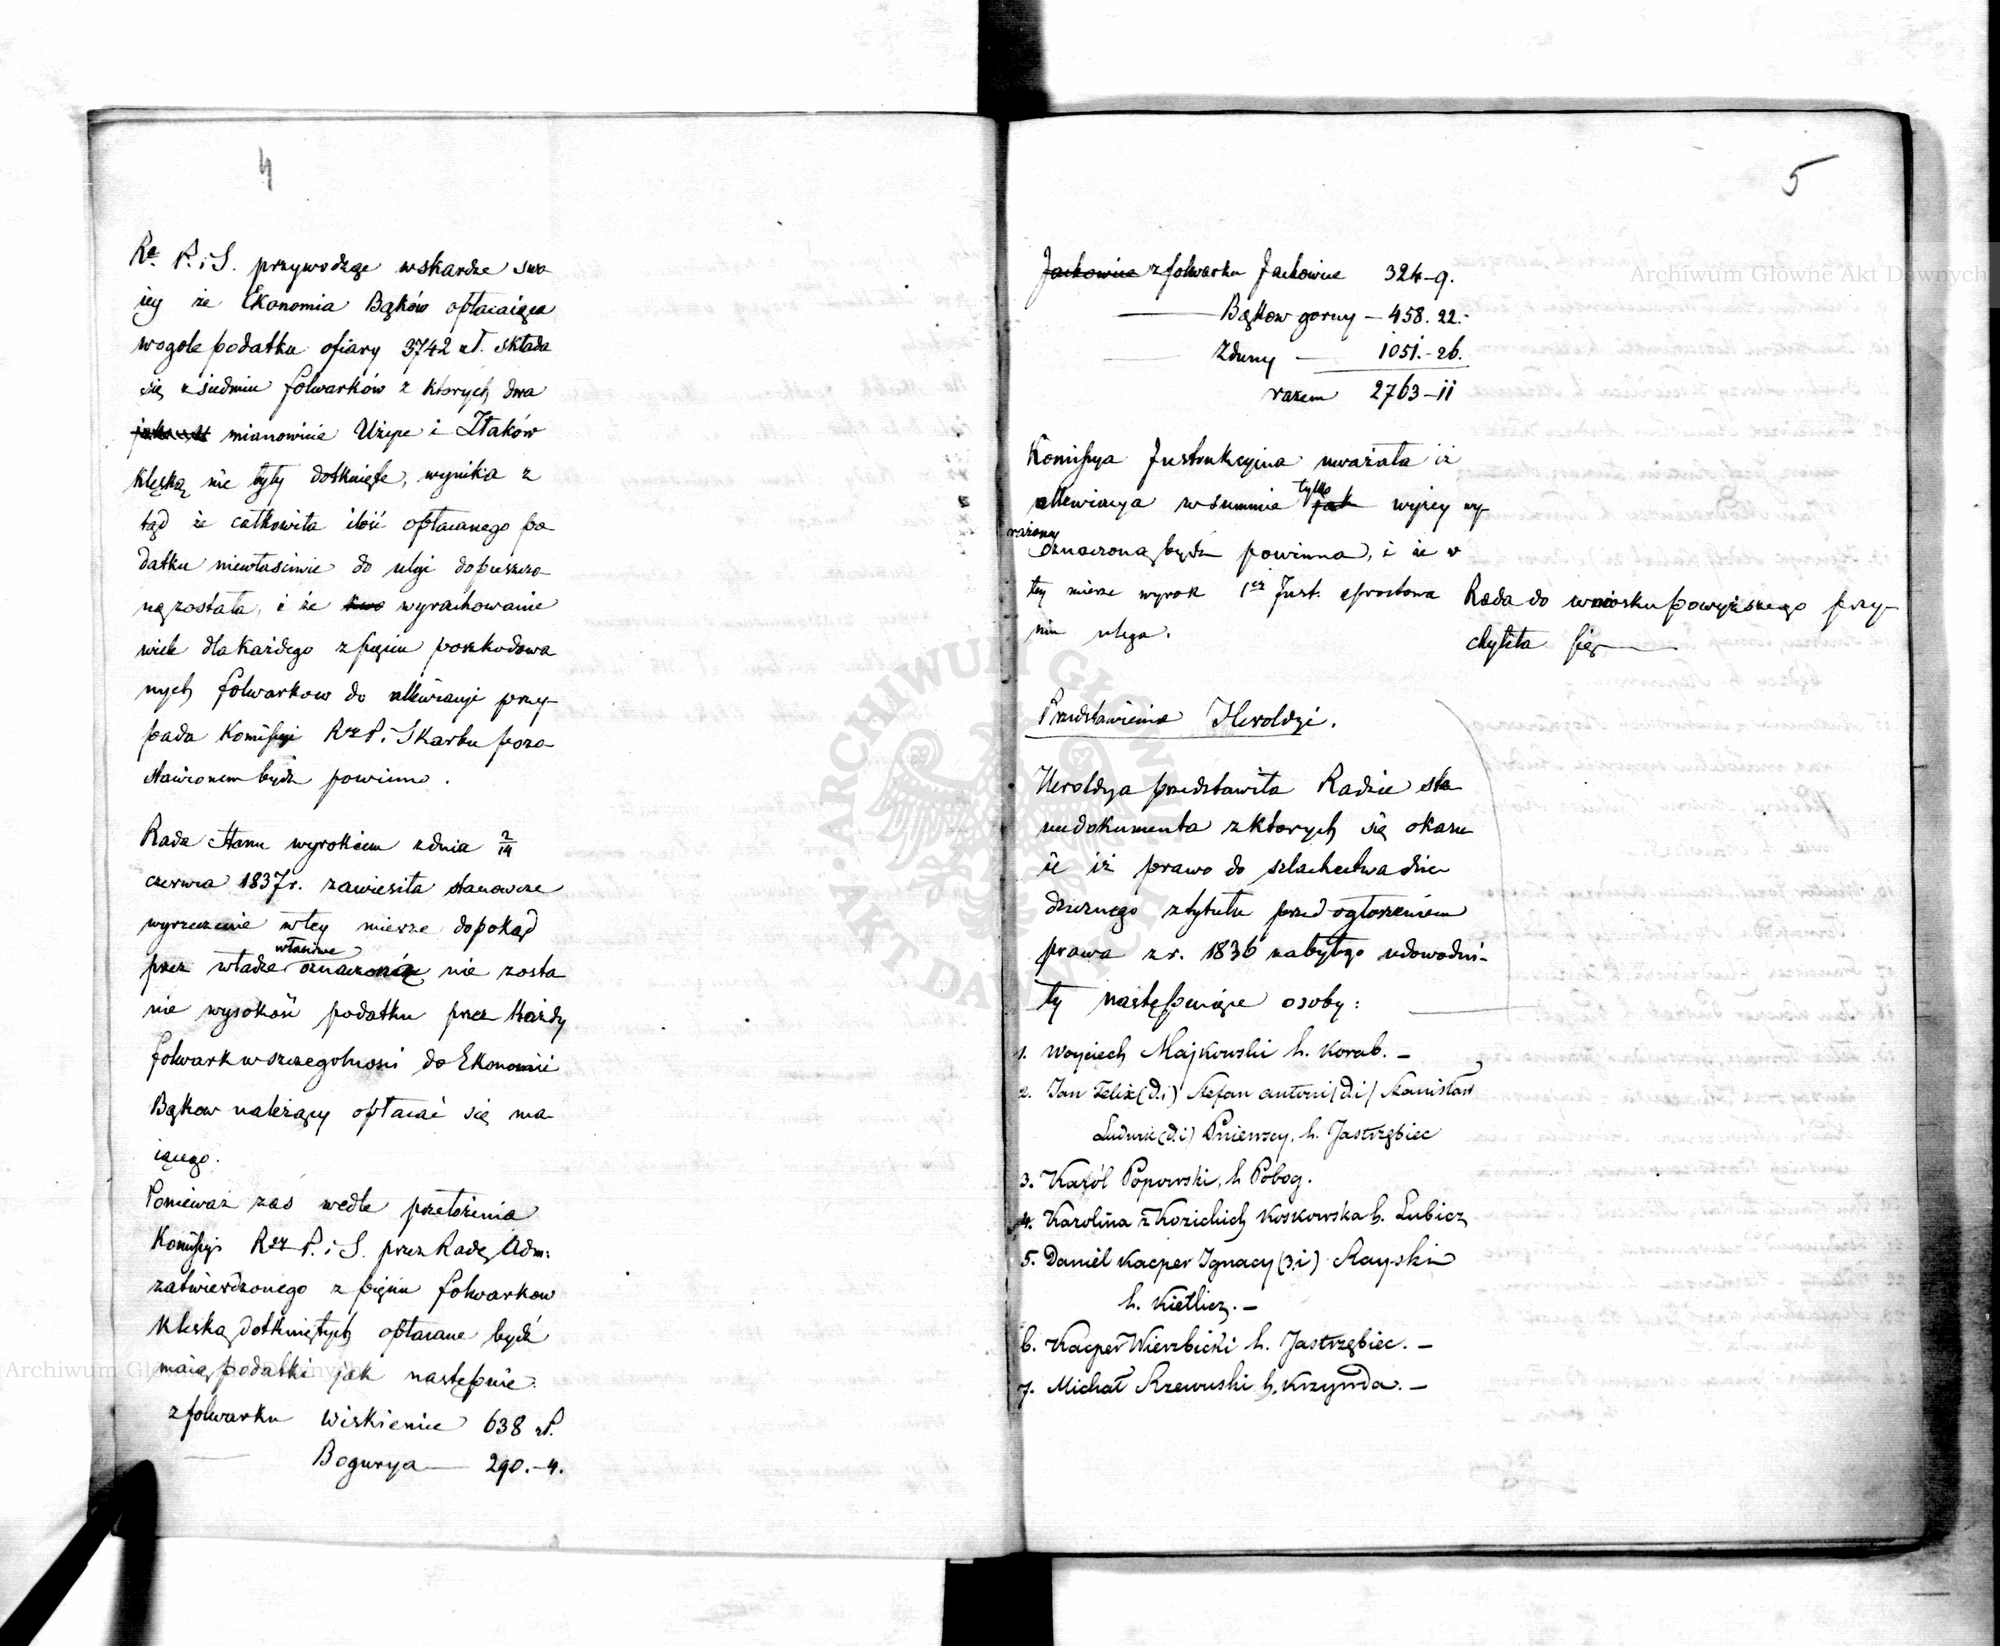 4
Ra. P. i S. przywodząc wskardze swo-
iey że Ekonomia Bąków opłacaiąca
wogole podatku ofiary 3742 zł. składa
się z siedmiu folwarków z ktorych dwa
mianowicie Urzęce i Złaków
klęską nie były dotknięte, wynika z
tąd że całkowita ilość opłacanego po
datku niewłaściwie do ulgi dopuszczo-
ną została, i że wyrachowanie
wiele dla każdego z pięciu poszkodowa
nych folwarkow do allewiacyi przy-
pada Komissyi Rzr P. i Skarbu pozo
stawionem bydź powinno.
Rada Stanu wyrokiem z dnia 2/14
czerwca 1837 r. zawiesiła stanowcze
wyrzeczenie w tey mierze dopokąd
przez władze właściwe oznaczoną nie zosta
nie wysokość podatku przez każdy
folwark w szczegolności do Ekonomii
Bąkow należący opłacać się ma
iącego.
Ponieważ zaś wedle przełożenia
Komissyi Rzr P. i S. przez Radę Adm:
zatwierdzonego z pięciu folwarkow
klęską dotkniętych opłacane bydź
maią podatki jak następuie
z folwarku Wiskienice 638 zł.
Bogurya — 290.-4.
5
Jackowice z folwarku Jackowice 324-9.
Bąkow gorny — 458. 22.-
Zduny — 1051.-26.
razem 2763-11
Komissya Instrukcyina uważała iż
allewiacya w summie tylko jak wyżey wy-
rażoney
oznaczona bydź powinna, i że w
tey mierze wyrok 1ey Inst. sprostowa
niu ulega.
Rada do wniosku powyższego przy-
chyliła się
Przedstawienia Heroldyi.
Heroldya przedstawiła Radzie sta
nu dokumenta z ktorych się okazu
ie iż prawo do szlachectwa dzie-
dzicznego z tytułu przed ogłoszeniem
prawa z r. 1836 nabytego udowodni-
ły następuiące osoby:
1. Woyciech Majkowski h. Korab. -
2. Jan Felix (d.i) Stefan Antoni (d.i) Stanisław
Ludwik (d.i) Pniewscy, h. Jastrzębiec
3. Karól Popowski, h Pobog.
4. Karolina z Kozickich Koskowska h. Lubicz
5. Daniel Kacper Ignacy (3.i) Rayski
h. Kietlicz. -
6. Kacper Wierzbicki h. Jastrzębiec. -
7. Michał Rzewuski h. Krzywda. -
Archiwum Główne Akt Dawnych
Archiwum Główne Akt Dawnych
ARCHIWUM GŁÓWNE AKT DAWNYCH